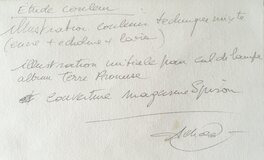 Etude couleur
illustration couleur technique mixte
(encre + ecoline + lavis)
illustration initiale pour cul de lampe
album Terre Promise
couverture magazine Spirou